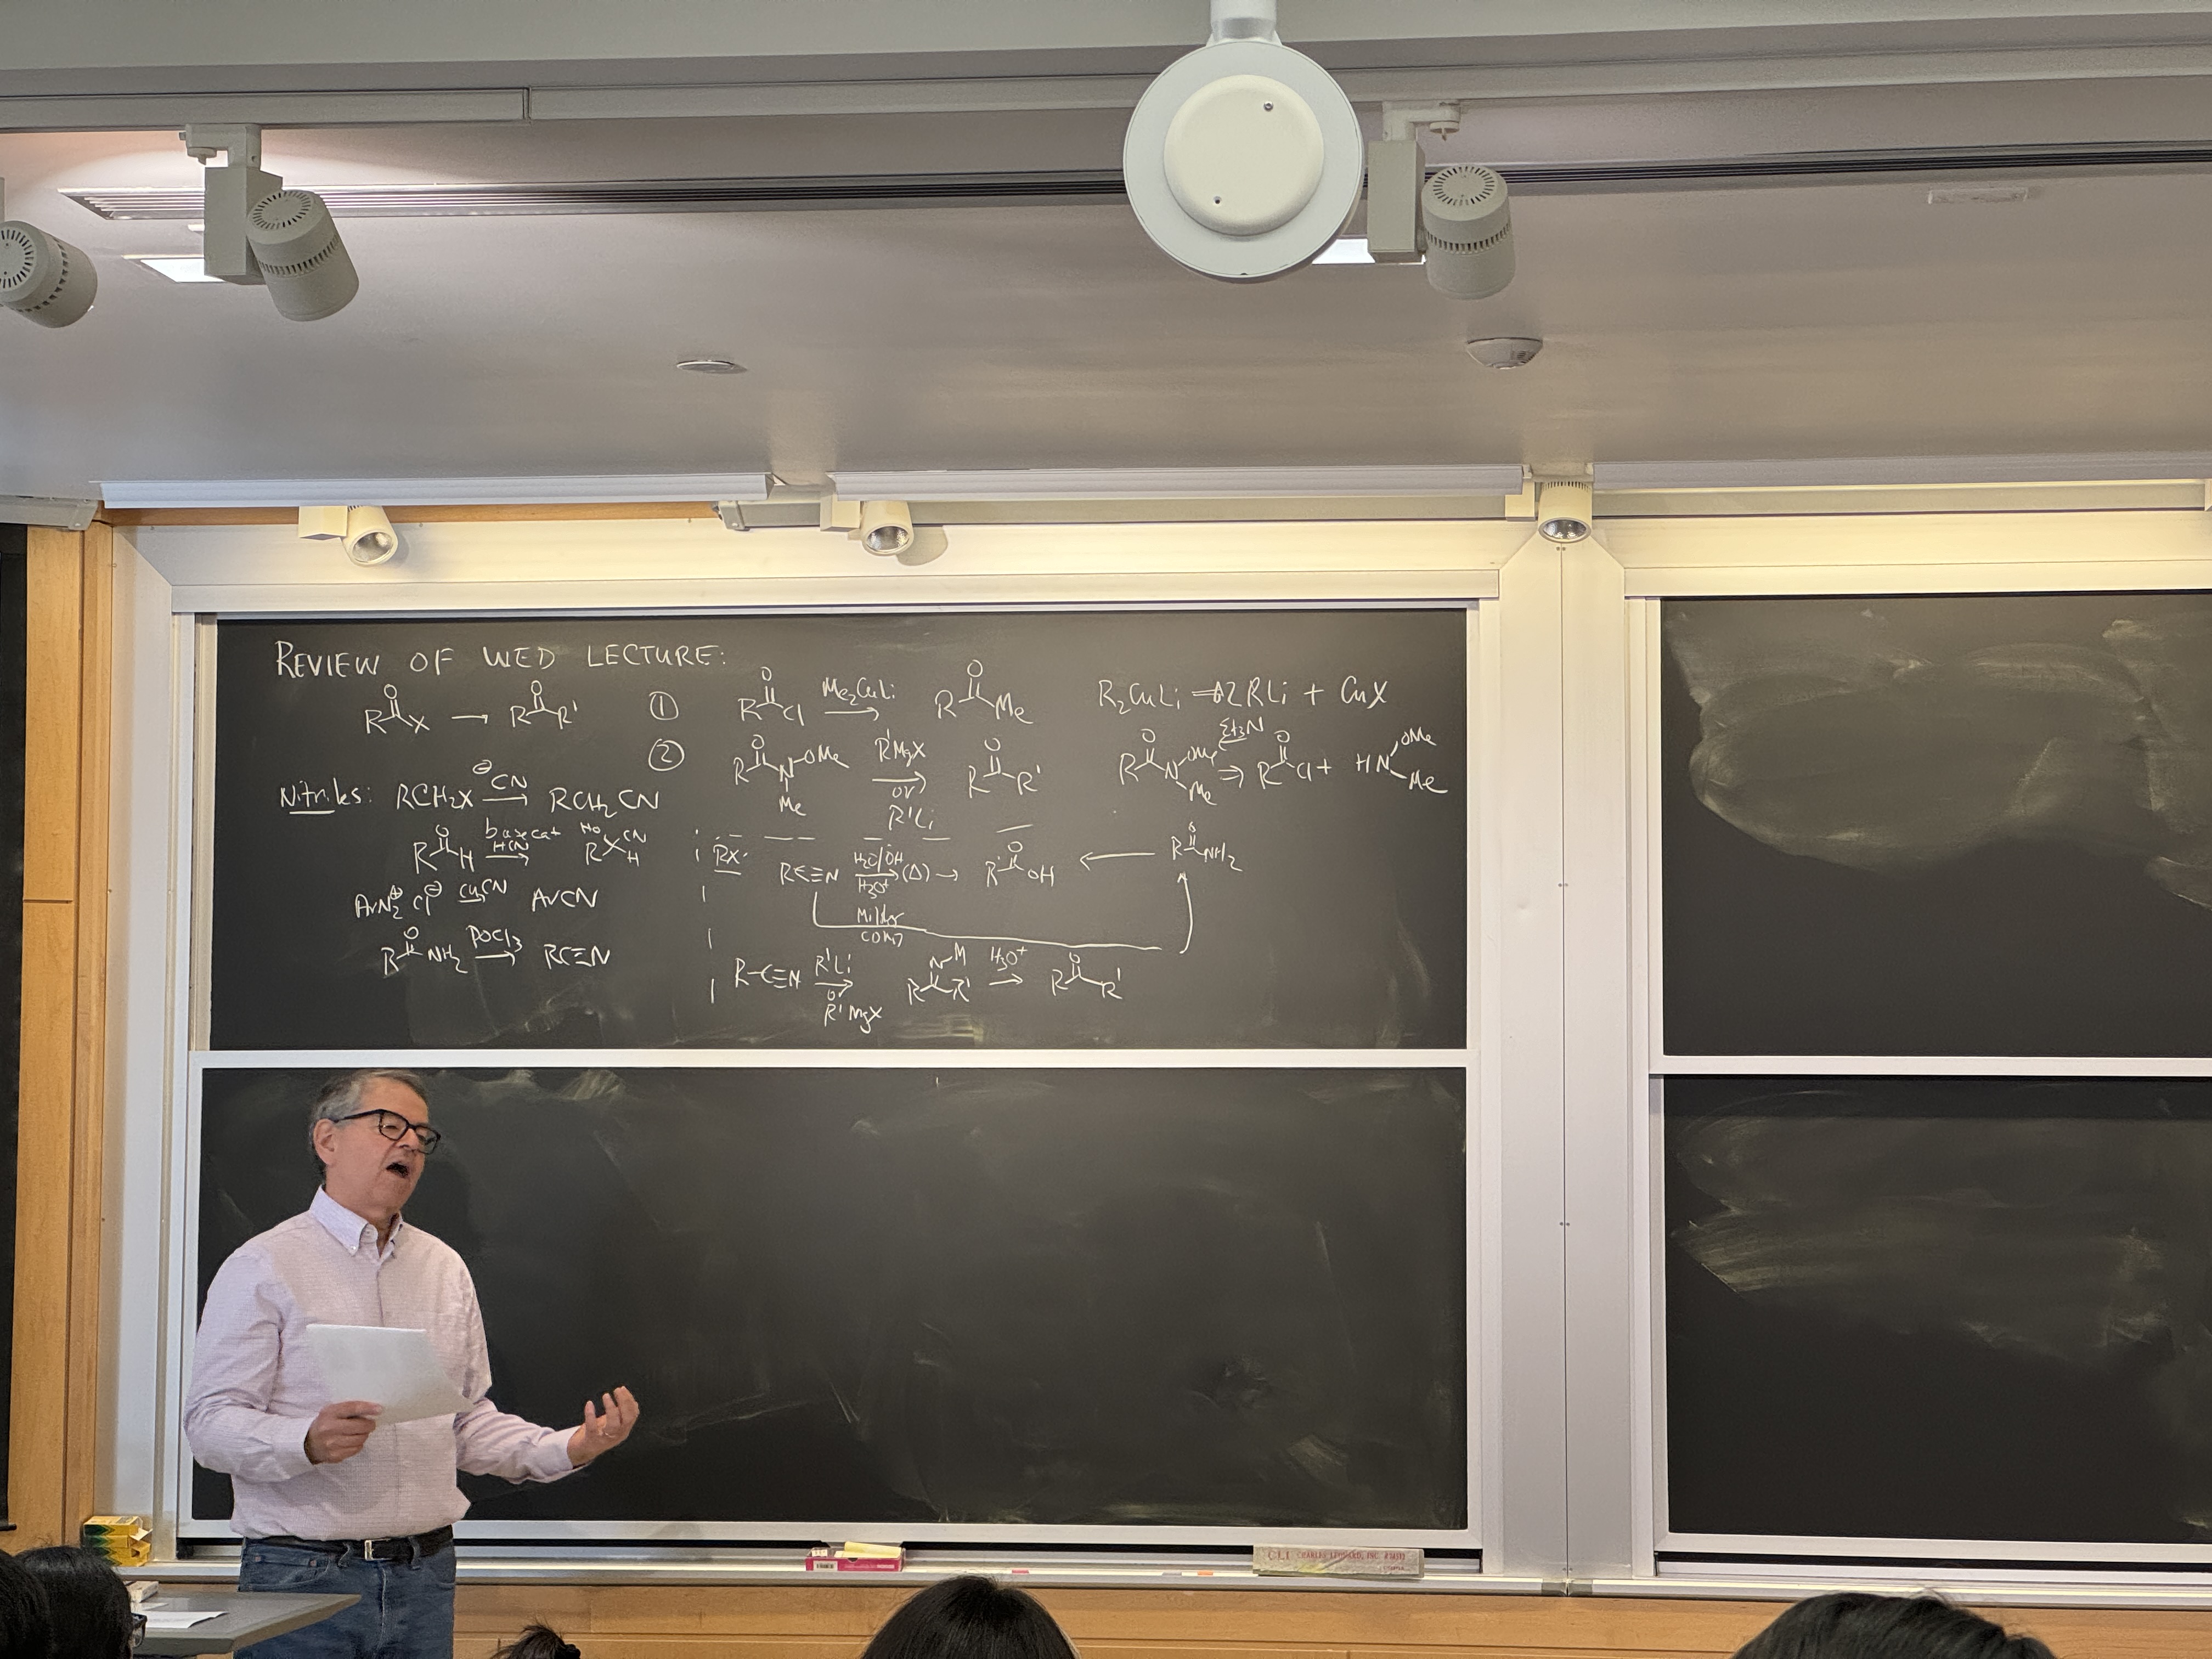 REVIEW OF WED LECTURE:
R O X → R O R'
① R O Cl Me₂CuLi → R O Me
R₂CuLi ⇒ 2RLi + CuX
② R O N OMe Me R'MgX → or R'Li R O R'
R O N OMe Me Et₃N ⇒ R O Cl + HN OMe Me
Nitriles: RCH₂X ⊖CN → RCH₂CN
R O H base cat HCN → R HO CN H
ArN₂⊕ Cl⊖ CuCN ArCN
R O NH₂ POCl₃ → RC≡N
RX: RC≡N H₂O/OH → H₃O⁺ (Δ) → R O OH ← R O NH₂
Milder
R-C≡N R'Li → or R'MgX R N M R' H₃O⁺ → R O R'
CLI CHARLES LEONARD, INC.